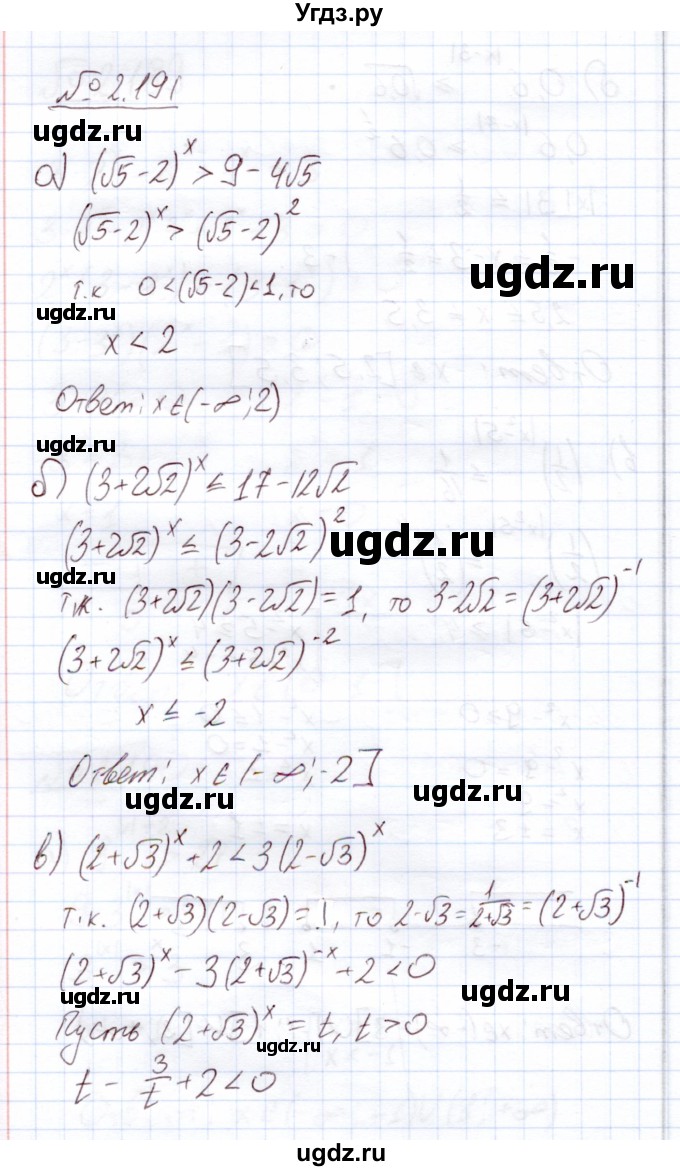 Угдз.ру
№ 2.191
ugdz.ru
а) (√5-2)^x > 9-4√5
(√5-2)^x > (√5-2)^2
ugdz.ru
т.к 0<(√5-2)<1, то
ugdz.ru
x < 2
Ответ: x ∈ (-∞; 2)
б) (3+2√2)^x ≤ 17-12√2
ugdz.ru
(3+2√2)^x ≤ (3-2√2)^2
ugdz.ru
ugdz.ru
т.к. (3+2√2)(3-2√2)=1, то 3-2√2=(3+2√2)^-1
(3+2√2)^x ≤ (3+2√2)^-2
x ≤ -2
Ответ: x ∈ (-∞; -2]
ugdz.ru
ugdz.ru
в) (2+√3)^x + 2 < 3(2-√3)^x
ugdz.ru
т.к. (2+√3)(2-√3)=1, то 2-√3 = 1/(2+√3) = (2+√3)^-1
(2+√3)^x - 3(2+√3)^-x + 2 < 0
ugdz.ru
Пусть (2+√3)^x = t, t>0
ugdz.ru
t - 3/t + 2 < 0
ugdz.ru